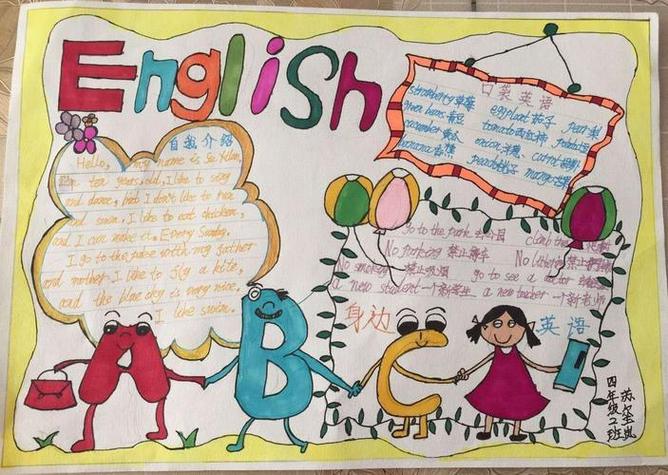 English
自我介绍
Hello, my name is Su
ten years old, I like to sing
and dance, but I don't like to run
and swim. I like to eat chicken,
and I can make it. Every Sunday,
I go to the with my father
and mother. I like to fly a kite,
and the blue sky is very nice.
I like swim.
口袋英语
strawberry 草莓 eggplant 茄子 pear 梨
green beans 青豆 tomato 西红柿 potato
cucumber 黄瓜 onion 洋葱 carrot
banana 香蕉 peach 桃子 mango 芒果
go to the park 去公园 climb the
No parking 禁止停车 No littering 禁止
No smoking 禁止吸烟 go to see a doctor
a new student 一个新学生 a new teacher 一个新老师
身边 英语
A B C
四年级2班
苏